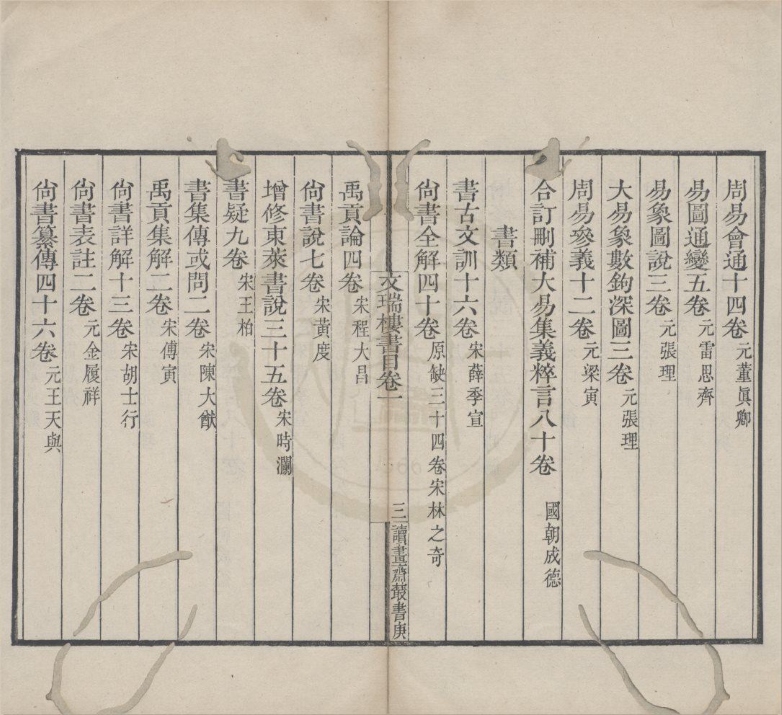 周易會通十四卷元董眞卿
易圖通變五卷元雷思齊
易象圖說三卷元張理
大易象數鉤深圖三卷元張理
周易參義十二卷元梁寅
合訂刪補大易集義粹言八十卷 國朝成德
書類
書古文訓十六卷宋薛季宣
尙書全解四十卷原缺三十四卷宋林之奇
文瑞樓書目卷一 三 讀畫齋叢書庚
禹貢論四卷宋程大昌
尙書說七卷宋黃度
增修東萊書說三十五卷宋時瀾
書疑九卷宋王柏
書集傳或問二卷宋陳大猷
禹貢集解二卷宋傅寅
尙書詳解十三卷宋胡士行
尙書表註二卷元金履祥
尙書纂傳四十六卷元王天與